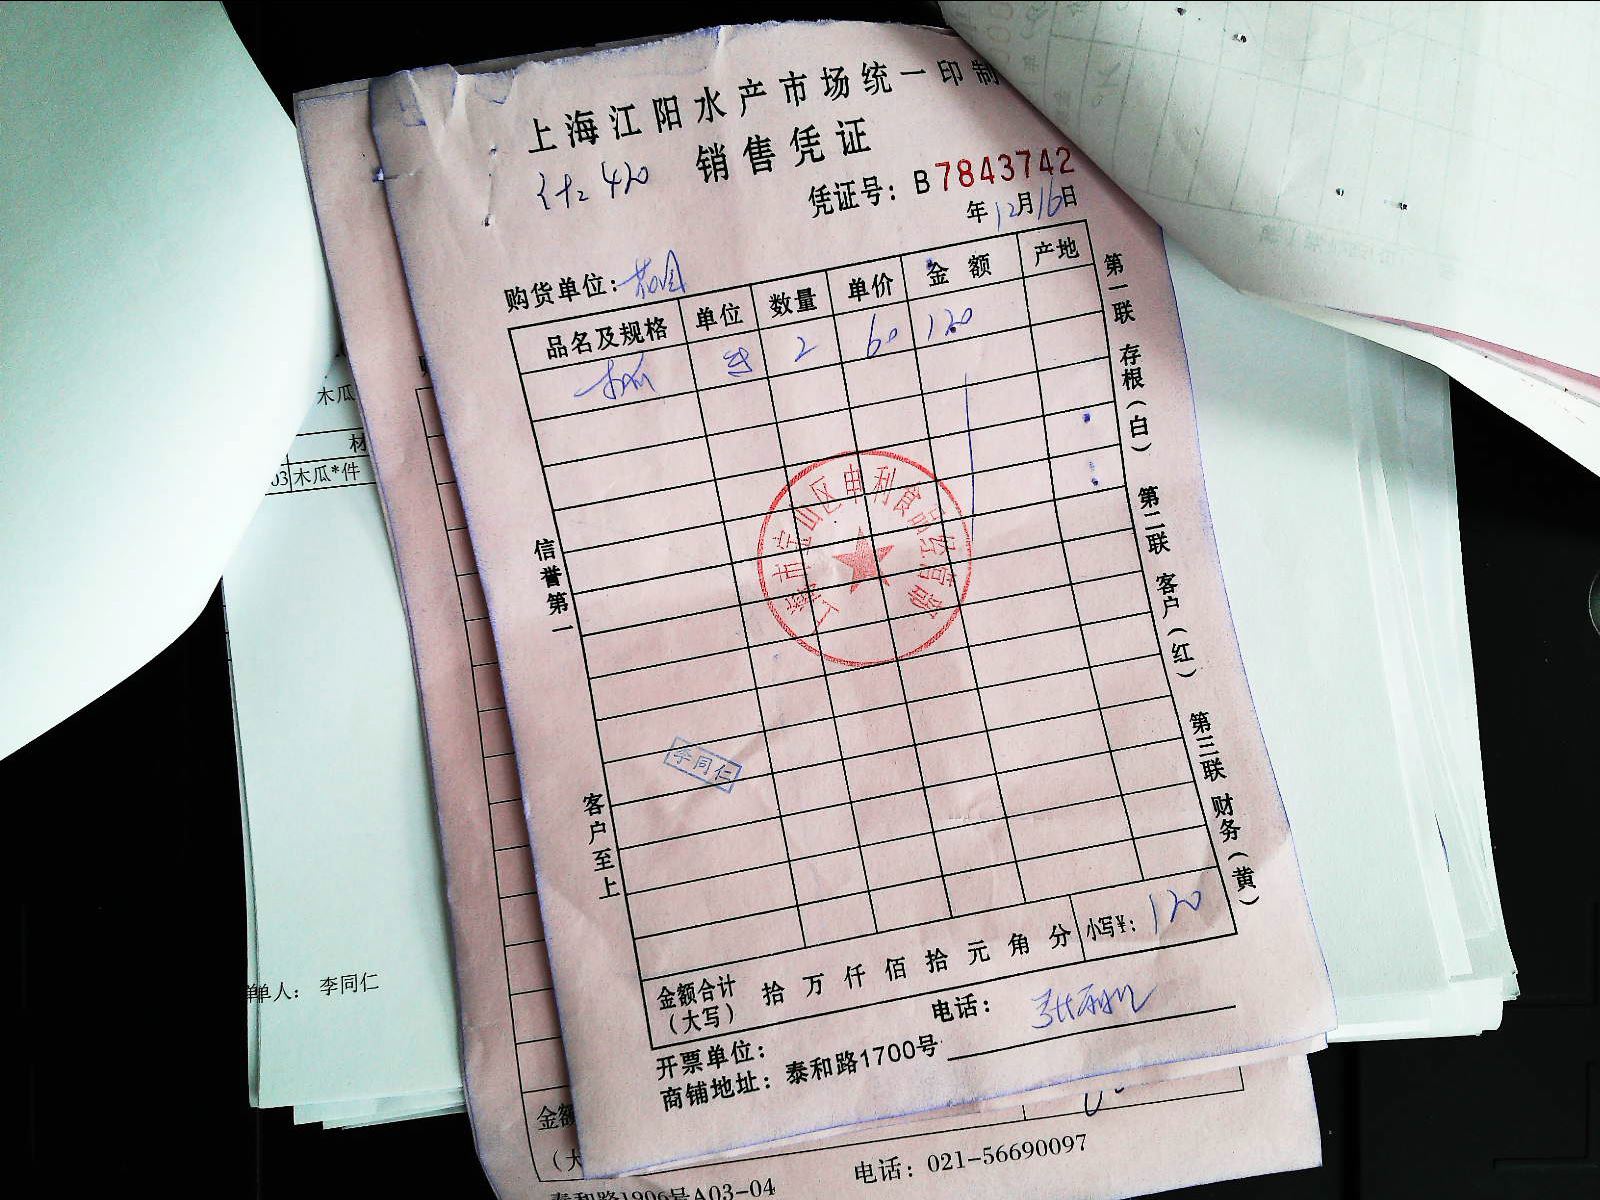 上海江阳水产市场统一印制
销售凭证
420
凭证号：B7843742
年12月16日
购货单位：
品名及规格 单位 数量 单价 金额 产地
木瓜 2 60 120
上海市宝山区申利食品经营部
李同仁
信誉第一
客户至上
第一联 存根（白） 第二联 客户（红） 第三联 财务（黄）
金额合计（大写） 拾 万 仟 佰 拾 元 角 分 小写¥：120
开票单位： 电话：
商铺地址：泰和路1700号
木瓜
材
03 木瓜*件
单人： 李同仁
金额
（大
电话：021-56690097
泰和路1906号A03-04